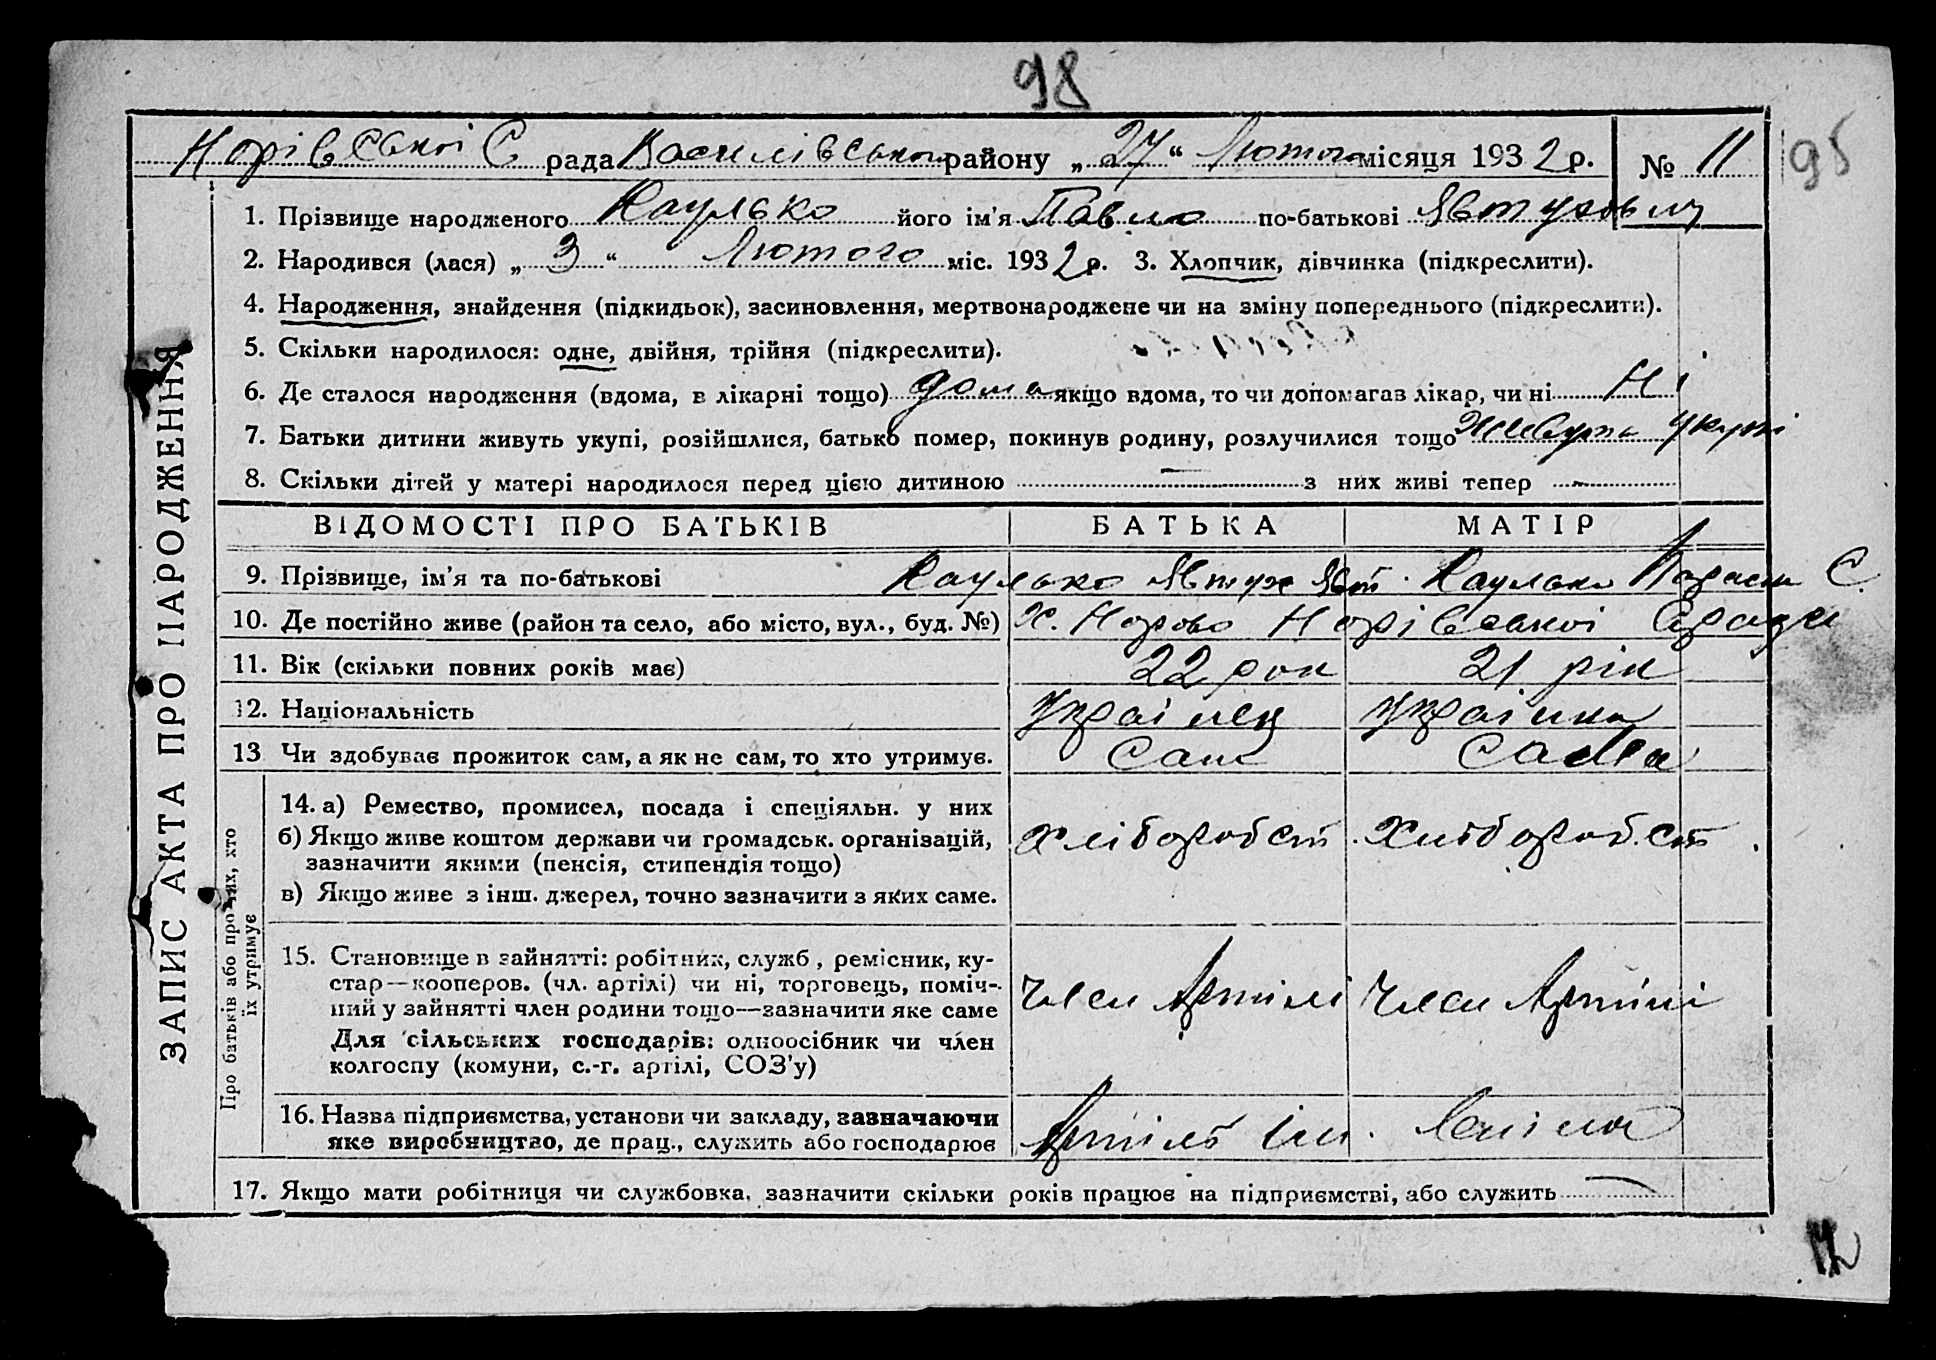 98
Норівської С рада Василівського району „ 27 “ Лютого місяця 1932 р. № 11
95
1. Прізвище народженого Каулько його ім'я Павло по-батькові Явтухович
2. Народився (лася) „ 3 “ Лютого міс. 1932 р. 3. Хлопчик, дівчинка (підкреслити).
4. Народження, знайдення (підкидьок), засиновлення, мертвонароджене чи на зміну попереднього (підкреслити).
5. Скільки народилося: одне, двійня, трійня (підкреслити).
6. Де сталося народження (вдома, в лікарні тощо) дома якщо вдома, то чи допомагав лікар, чи ні Ні
7. Батьки дитини живуть укупі, розійшлися, батько помер, покинув родину, розлучилися тощо Живуть Укупі
8. Скільки дітей у матері народилося перед цією дитиною — з них живі тепер —
ВІДОМОСТІ ПРО БАТЬКІВ БАТЬКА МАТІР
9. Прізвище, ім'я та по-батькові Каулько Явтух Явт. Каулько Параска С.
10. Де постійно живе (район та село, або місто, вул., буд. №) Х. Норово Норівської С/ради
11. Вік (скільки повних років має) 22 рок 21 рік
12. Національність Українец Українка
13 Чи здобуває прожиток сам, а як не сам, то хто утримує. Сам Сама
14. а) Ремество, промисел, посада і спеціяльн. у них
б) Якщо живе коштом держави чи громадськ. організацій, Хліборобст. Хліборобст.
зазначити якими (пенсія, стипендія тощо)
в) Якщо живе з інш. джерел, точно зазначити з яких саме.
15. Становище в зайнятті: робітник, служб, ремісник, ку-
стар—кооперов. (чл. артілі) чи ні, торговець, поміч-
ний у зайнятті член родини тощо—зазначити яке саме Член Артілі Член Артілі
Для сільських господарів: одноосібник чи член
колгоспу (комуни, с.-г. артілі, СОЗ'у)
16. Назва підприємства, установи чи закладу, зазначаючи
яке виробництво, де прац., служить або господарює Артіль Ім. Леніна
17. Якщо мати робітниця чи службовка, зазначити скільки років працює на підприємстві, або служить —
ЗАПИС АКТА ПРО НАРОДЖЕННЯ
Про батьків або про них, хто
їх утримує